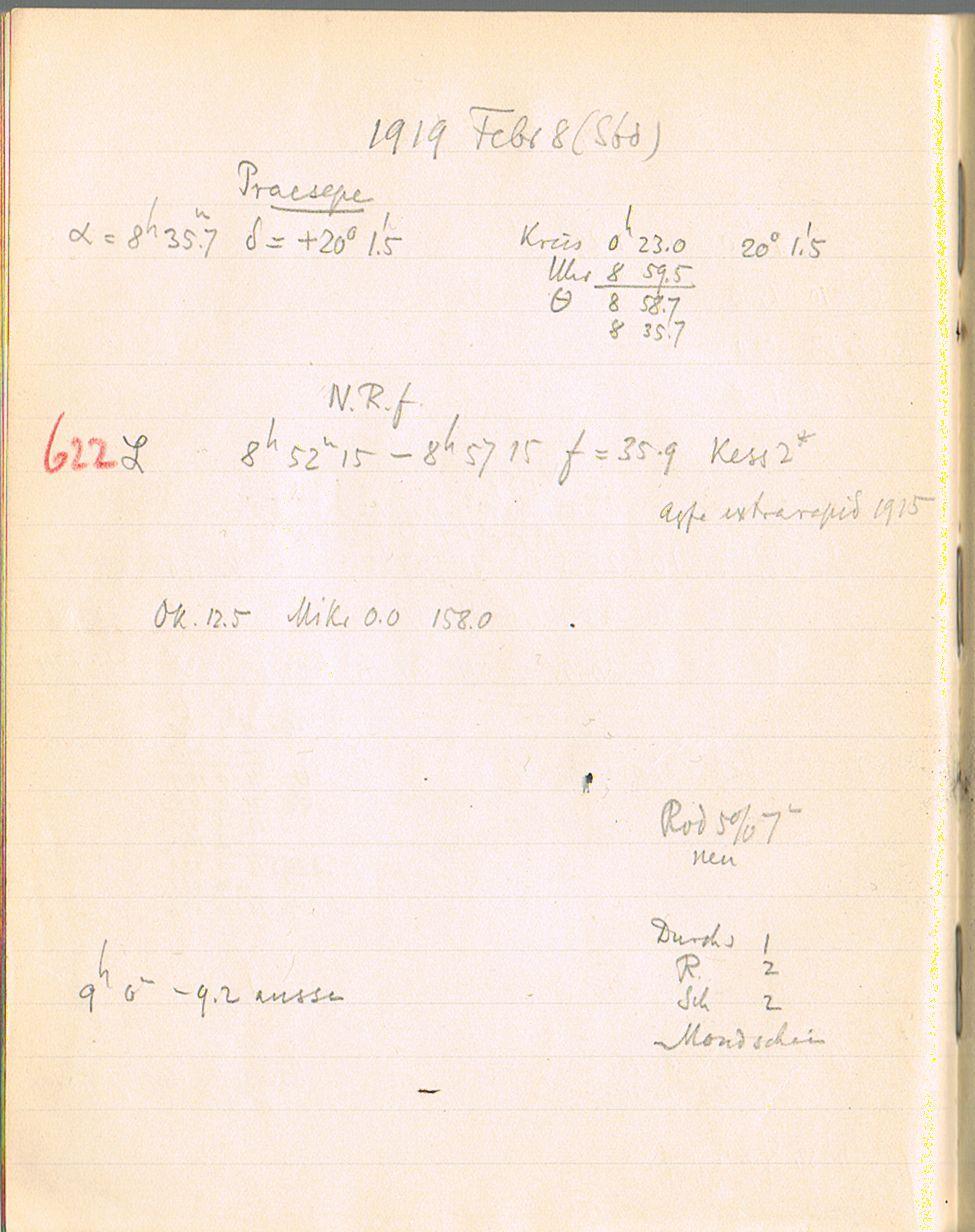 1919 Febr 8 (Sbd)
Praesepe
α = 8ʰ 35ᵐ.7 δ = +20° 1'.5
Kreis 0ʰ 23.0 20° 1'.5
Uhr 8 59.5
θ 8 58.7
8 35.7
N.R.f.
622 L 8ʰ 52ᵐ 15 – 8ʰ 57 15 f = 35.9 Kess 2*
Agfa extrarapid 1915
Ok. 12.5 Mikr 0.0 158.0
Rod 5% 7ᵐ
neu
Durchs 1
R. 2
Sch 2
9ʰ 0ᵐ –9.2 aussen
Mondschein